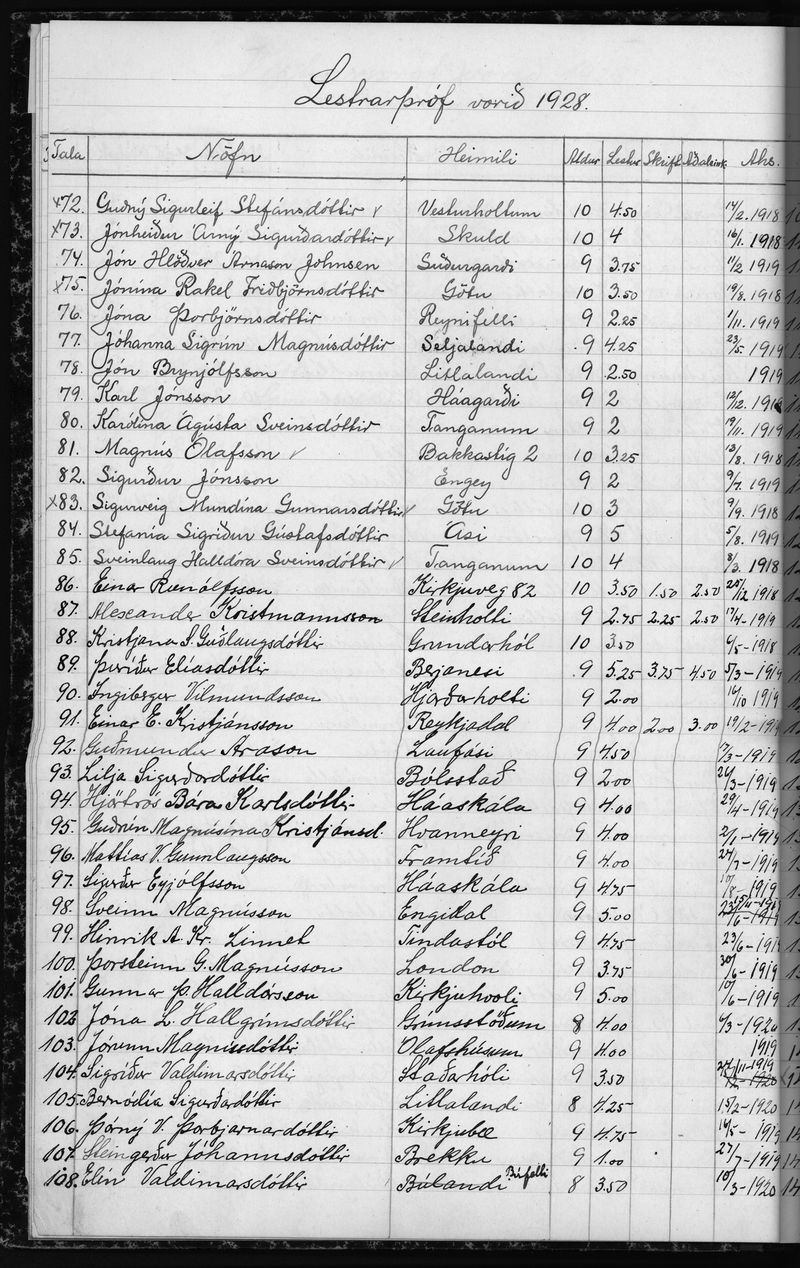 Lestrarpróf vorið 1928.
Tala Nöfn Heimili Aldur Lestur Skrift Aðaleink. Aths.
x72. Guðný Sigurleif Stefánsdóttir v Vesturholtum 10 4.50 14/2. 1918
x73. Jónheiður Árný Sigurðardóttir v Skuld 10 4 16/1. 1918
74. Jón Hlöðver Árnason Johnsen Suðurgarði 9 3.75 11/2 1919
x75. Jónína Rakel Friðbjörnsdóttir Götu 10 3.50 19/8. 1918
76. Jóna Þorbjörnsdóttir Reynifelli 9 2.25 1/11. 1919
77. Jóhanna Sigrún Magnúsdóttir Seljalandi 9 4.25 23/5. 1919
78. Jón Brynjólfsson Litlalandi 9 2.50 1919
79. Karl Jónsson Háagarði 9 2 12/12.
80. Karólína Ágústa Sveinsdóttir Tanganum 9 2 19/11. 1919
81. Magnús Ólafsson v Bakkastíg 2 10 3.25 13/8. 1918
82. Sigurður Jónsson Engey 9 2 9/7. 1919
x83. Sigurveig Mundína Gunnarsdóttir v Götu 10 3 9/9. 1918
84. Stefanía Sigríður Gústafsdóttir Ási 9 5 5/8. 1919
85. Sveinlaug Halldóra Sveinsdóttir v Tanganum 10 4 8/3. 1918
86. Einar Runólfsson Kirkjuveg 82 10 3.50 1.50 2.50 25/12 1918
87. Alexander Kristmannsson Steinholti 9 2.75 2.25 2.50 17/4-1919
88. Kristjana S. Guðlaugsdóttir Grundarhól 10 3.50 6/5-1918
89. Þuríður Elíasdóttir Berjanesi 9 5.25 3.75 4.50 5/3-1919
90. Ingiberger Vilmundsson Hjarðarholti 9 2.00 16/10 1919
91. Einar E. Kristjánsson Reykjadal 9 4.00 2.00 3.00 19/2-1919
92. Guðmundur Arason Laufási 9 4.50 17/3-1919
93. Lilja Sigurðardóttir Bólsstað 9 2.00 26/3-1919
94. Hjörtrós Bára Karlsdóttir Háaskála 9 4.00 29/4-1919
95. Guðrún Magnúsína Kristjánsd. Hvanneyri 9 4.00 2/1-1919
96. Mattías V. Gunnlaugsson Framtíð 9 4.00 24/7-1919
97. Sigurður Eyjólfsson Háaskála 9 4.75 10/8-1919
98. Sveinn Magnússon Engidal 9 5.00
99. Hinrik A. Kr. Linnet Tindastól 9 4.75 23/6-1919
100. Þorsteinn G. Magnússon London 9 3.75 30/6-1919
101. Gunnar Þ. Halldórsson Kirkjuhvoli 9 5.00 10/6-1919
102 Jóna L. Hallgrímsdóttir Grímsstöðum 8 4.00 6/3-1920
103. Jórunn Magnúsdóttir Ólafshúsum 9 4.00 1919
104. Sigríður Valdimarsdóttir Staðarhóli 9 3.50 24/11-1919
105. Bernódía Sigurðardóttir Litlalandi 8 4.25 15/2-1920
106. Þórný V. Þorbjarnardóttir Kirkjubæ 9 4.75 16/5-1919
107. Steingerður Jóhannsdóttir Brekku 9 1.00 27/7-1919
108. Elín Valdimarsdóttir Búlandi Búfelli 8 3.50 10/3-1920